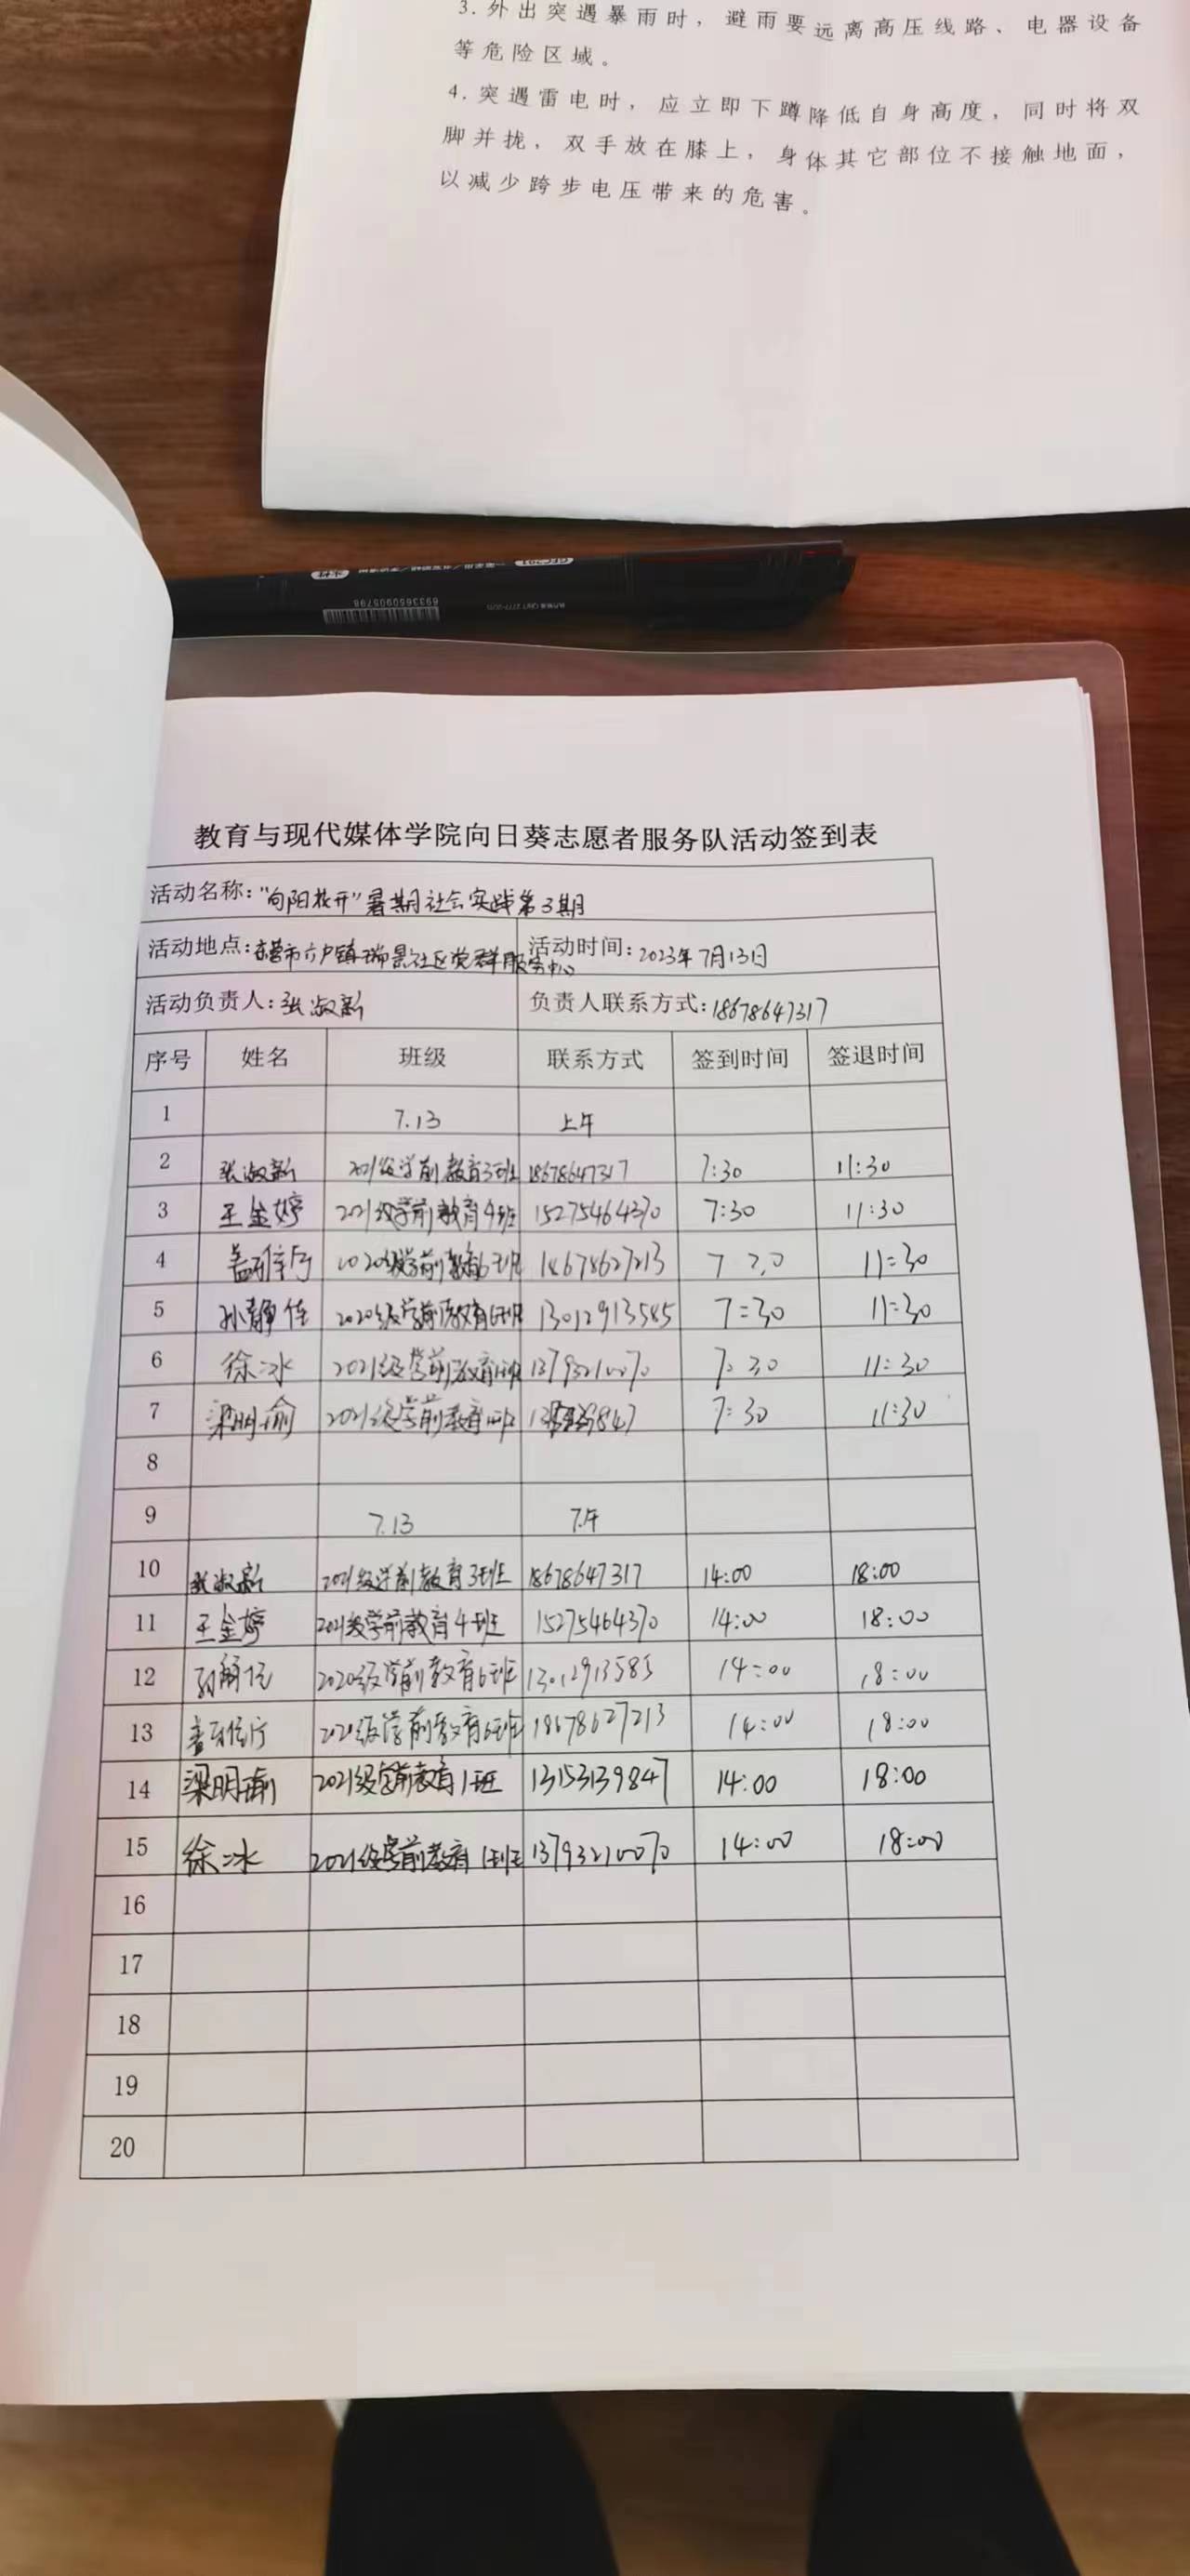 3. 外出突遇暴雨时，避雨要远离高压线路、电器设备
等危险区域。
4. 突遇雷电时，应立即下蹲降低自身高度，同时将双
脚并拢，双手放在膝上，身体其它部位不接触地面，
以减少跨步电压带来的危害。
6933660905798
教育与现代媒体学院向日葵志愿者服务队活动签到表
活动名称："向阳花开"暑期社会实践第3期
活动地点：东营市六户镇瑞景社区党群服务中心 活动时间：2023年7月13日
活动负责人：张淑新 负责人联系方式：18678647317
序号 姓名 班级 联系方式 签到时间 签退时间
1 7.13 上午
2 张淑新 2021级学前教育3班 18678647317 7:30 11:30
3 王金婷 2021级学前教育4班 15275464370 7:30 11:30
4 2020级学前教育6班 18678627213 7 30 11:30
5 孙静佳 2020级学前教育6班 13012913585 7:30 11:30
6 徐冰 2021级学前教育1班 13793210070 7:30 11:30
7 梁明瑜 2021级学前教育1班 7:30 11:30
8
9 7.13 下午
10 张淑新 2021级学前教育3班 18678647317 14:00 18:00
11 王金婷 2021级学前教育4班 15275464370 14:00 18:00
12 孙静佳 2020级学前教育6班 13012913585 14:00 18:00
13 2020级学前教育6班 18678627213 14:00 18:00
14 梁明瑜 2021级学前教育1班 13153139847 14:00 18:00
15 徐冰 2021级学前教育1班 13793210070 14:00 18:00
16
17
18
19
20